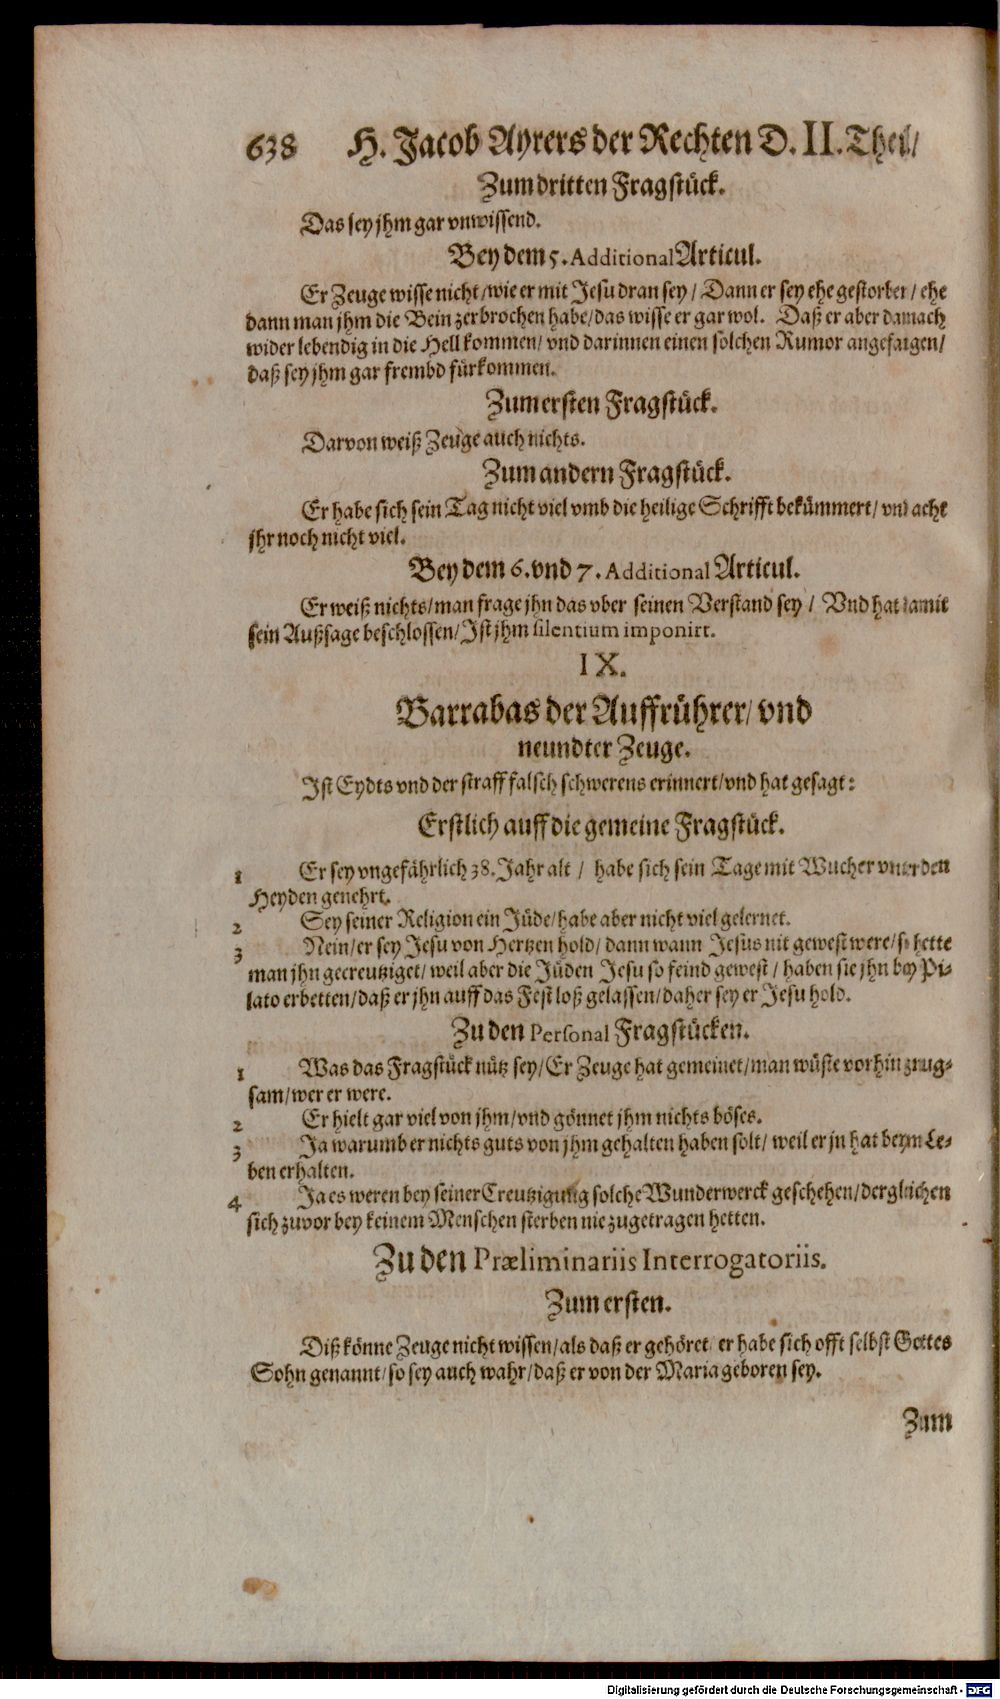 638 H. Jacob Ayrers der Rechten D. II. Theil/
Zum dritten Fragstück.
Das sey jhm gar vnwissend.
Bey dem 5. Additional Articul.
Er Zeuge wisse nicht/ wie er mit Jesu dran sey/ Dann er sey ehe gestorben/ ehe
dann man jhm die Bein zerbrochen habe/ das wisse er gar wol. Daß er aber darnach
wider lebendig in die Hell kommen/ vnd darinnen einen solchen Rumor angefangen/
daß sey jhm gar frembd fürkommen.
Zum ersten Fragstück.
Darvon weiß Zeuge auch nichts.
Zum andern Fragstück.
Er habe sich sein Tag nicht viel vmb die heilige Schrifft bekümmert/ vnd acht
jhr noch nicht viel.
Bey dem 6. vnd 7. Additional Articul.
Er weiß nichts/ man frage jhn das vber seinen Verstand sey/ Vnd hat damit
sein Außsage beschlossen/ Ist jhm silentium imponirt.
IX.
Barrabas der Auffrührer/ vnd
neundter Zeuge.
Ist Eydts vnd der straff falsch schwerens erinnert/ vnd hat gesagt:
Erstlich auff die gemeine Fragstück.
1 Er sey vngefährlich 38. Jahr alt/ habe sich sein Tage mit Wucher vnter den
Heyden genehrt.
2 Sey seiner Religion ein Jüde/ habe aber nicht viel gelernet.
3 Nein/ er sey Jesu von Hertzen hold/ dann wann Jesus nit gewest were/ so hette
man jhn gecreutziget/ weil aber die Jüden Jesu so feind gewest/ haben sie jhn bey Pi-
lato erbetten/ daß er jhn auff das Fest loß gelassen/ daher sey er Jesu hold.
Zu den Personal Fragstücken.
1 Was das Fragstück nütz sey/ Er Zeuge hat gemeinet/ man wüste vorhin gnug-
sam/ wer er were.
2 Er hielt gar viel von jhm/ vnd gönnet jhm nichts böses.
3 Ja warumb er nichts guts von jhm gehalten haben solt/ weil er jn hat beym Le-
ben erhalten.
4 Ja es weren bey seiner Creutzigung solche Wunderwerck geschehen/ dergleichen
sich zuvor bey keinem Menschen sterben nie zugetragen hetten.
Zu den Præliminariis Interrogatoriis.
Zum ersten.
Diß könne Zeuge nicht wissen/ als daß er gehöret/ er habe sich offt selbst Gottes
Sohn genannt/ so sey auch wahr/ daß er von der Maria geboren sey.
Zum
Digitalisierung gefördert durch die Deutsche Forschungsgemeinschaft - DFG